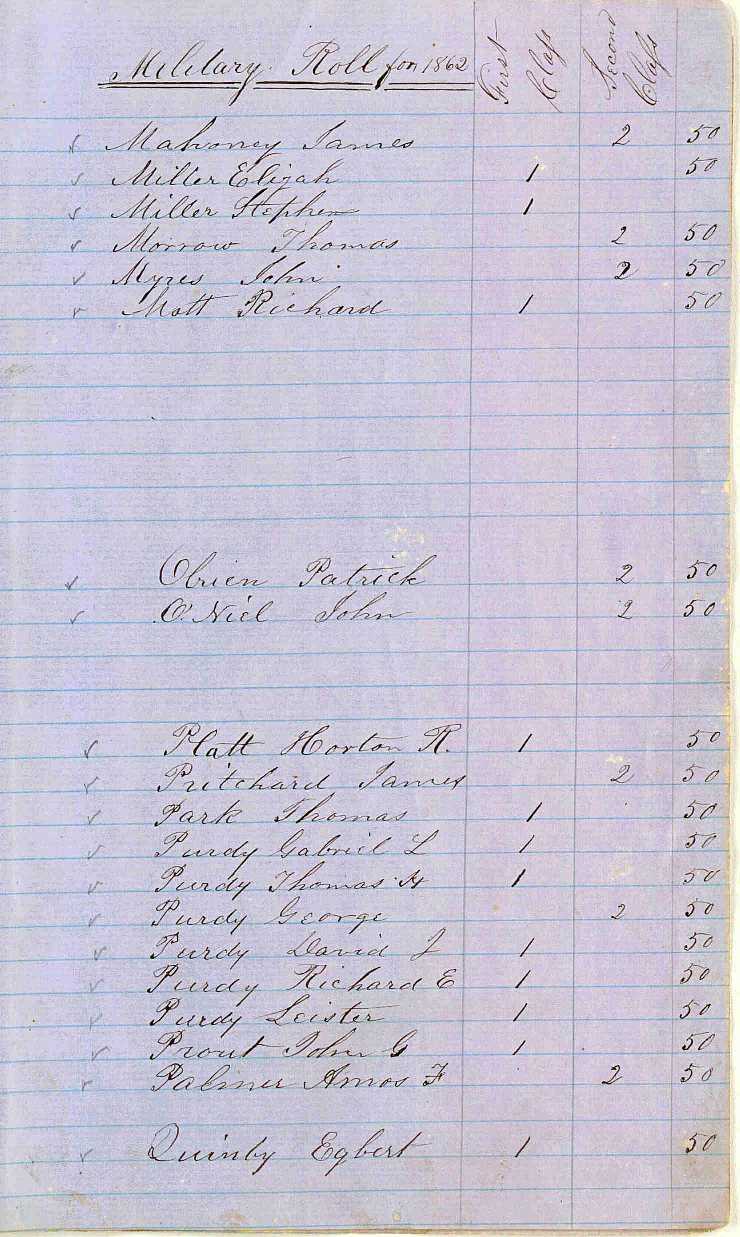 Military Roll for 1862 First Class Second Class
Mahoney James 2 50
Miller Elijah 1 50
Miller Stephen 1
Morrow Thomas 2 50
Myres John 2 50
Mott Richard 1 50
Obrien Patrick 2 50
O'Niel John 2 50
Platt Horton R. 1 50
Pritchard James 2 50
Park Thomas 1 50
Purdy Gabriel L 1 50
Purdy Thomas H 1 50
Purdy George 2 50
Purdy David J 1 50
Purdy Richard E 1 50
Purdy Leister 1 50
Prout John G 1 50
Palmer Amos F 2 50
Quinby Egbert 1 50